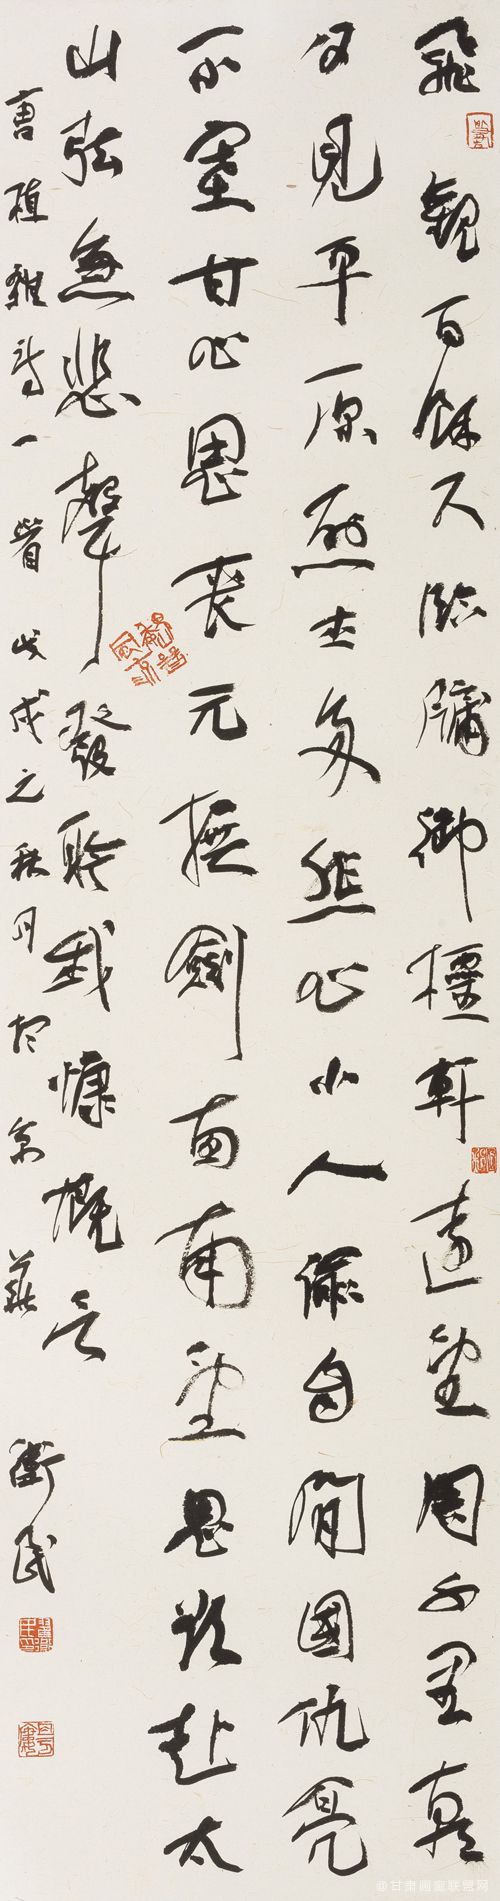 飛觀百餘尺臨牖御櫺軒遠望周千里朝
夕見平原烈士多悲心小人偷自閒國仇亮
不塞甘心思喪元撫劍西南望思欲赴太
山弦急悲聲發聆我慷慨言
曹植雜詩一首戊戌之秋月於京華衛民
@甘肃画廊联盟网